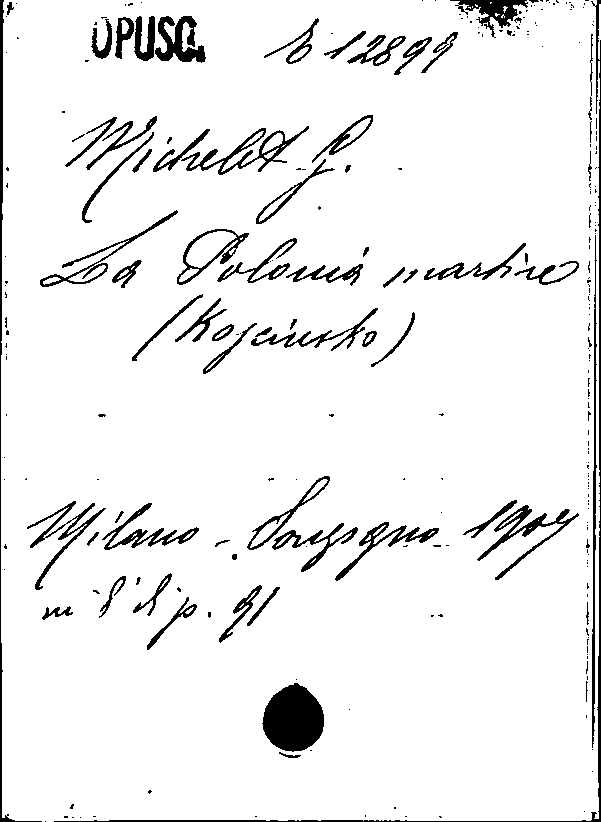 OPUSC. E 12899
Michelet G.
La Polonia martire
(Kosciusko)
Milano - Sonzogno 1907
in 8° di p. 91